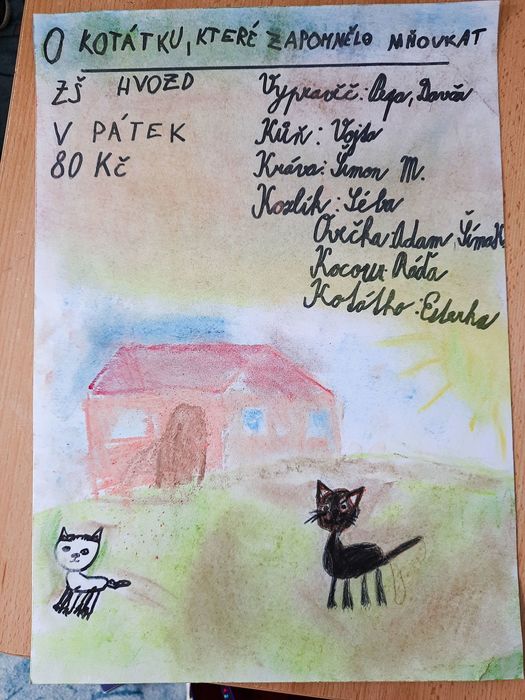 O KOŤÁTKU, KTERÉ ZAPOMNĚLO MŇOUKAT
ZŠ HVOZD
V PÁTEK
80 Kč
Vypravěč: Pepa, Davča
Kůň: Vojta
Kráva: Šimon M.
Kozlík: Séba
Ovečka: Adam, Šímak
Kocour: Ráďa
Koťátko: Esterka